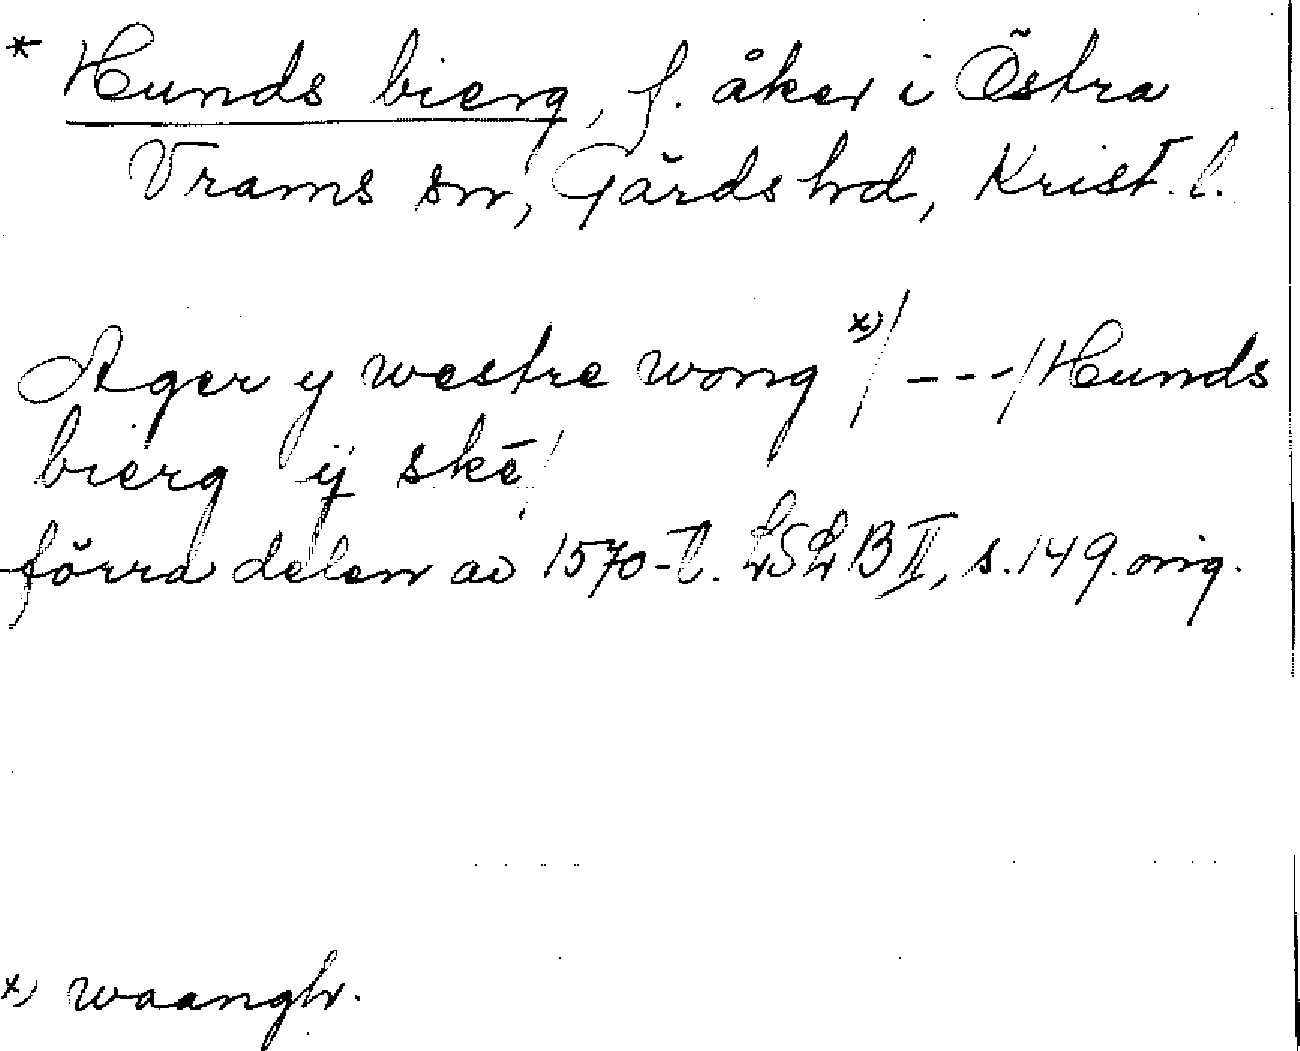 * Hunds bierg, f. åker i Östra
Vrams sn, Gärds hd, Krist. l.
Ager y westre wong x)/ ---/ Hunds
bierg ÿ skē/
förra delen av 1570-t. LSLB II, s. 149. orig.
x) waangh.